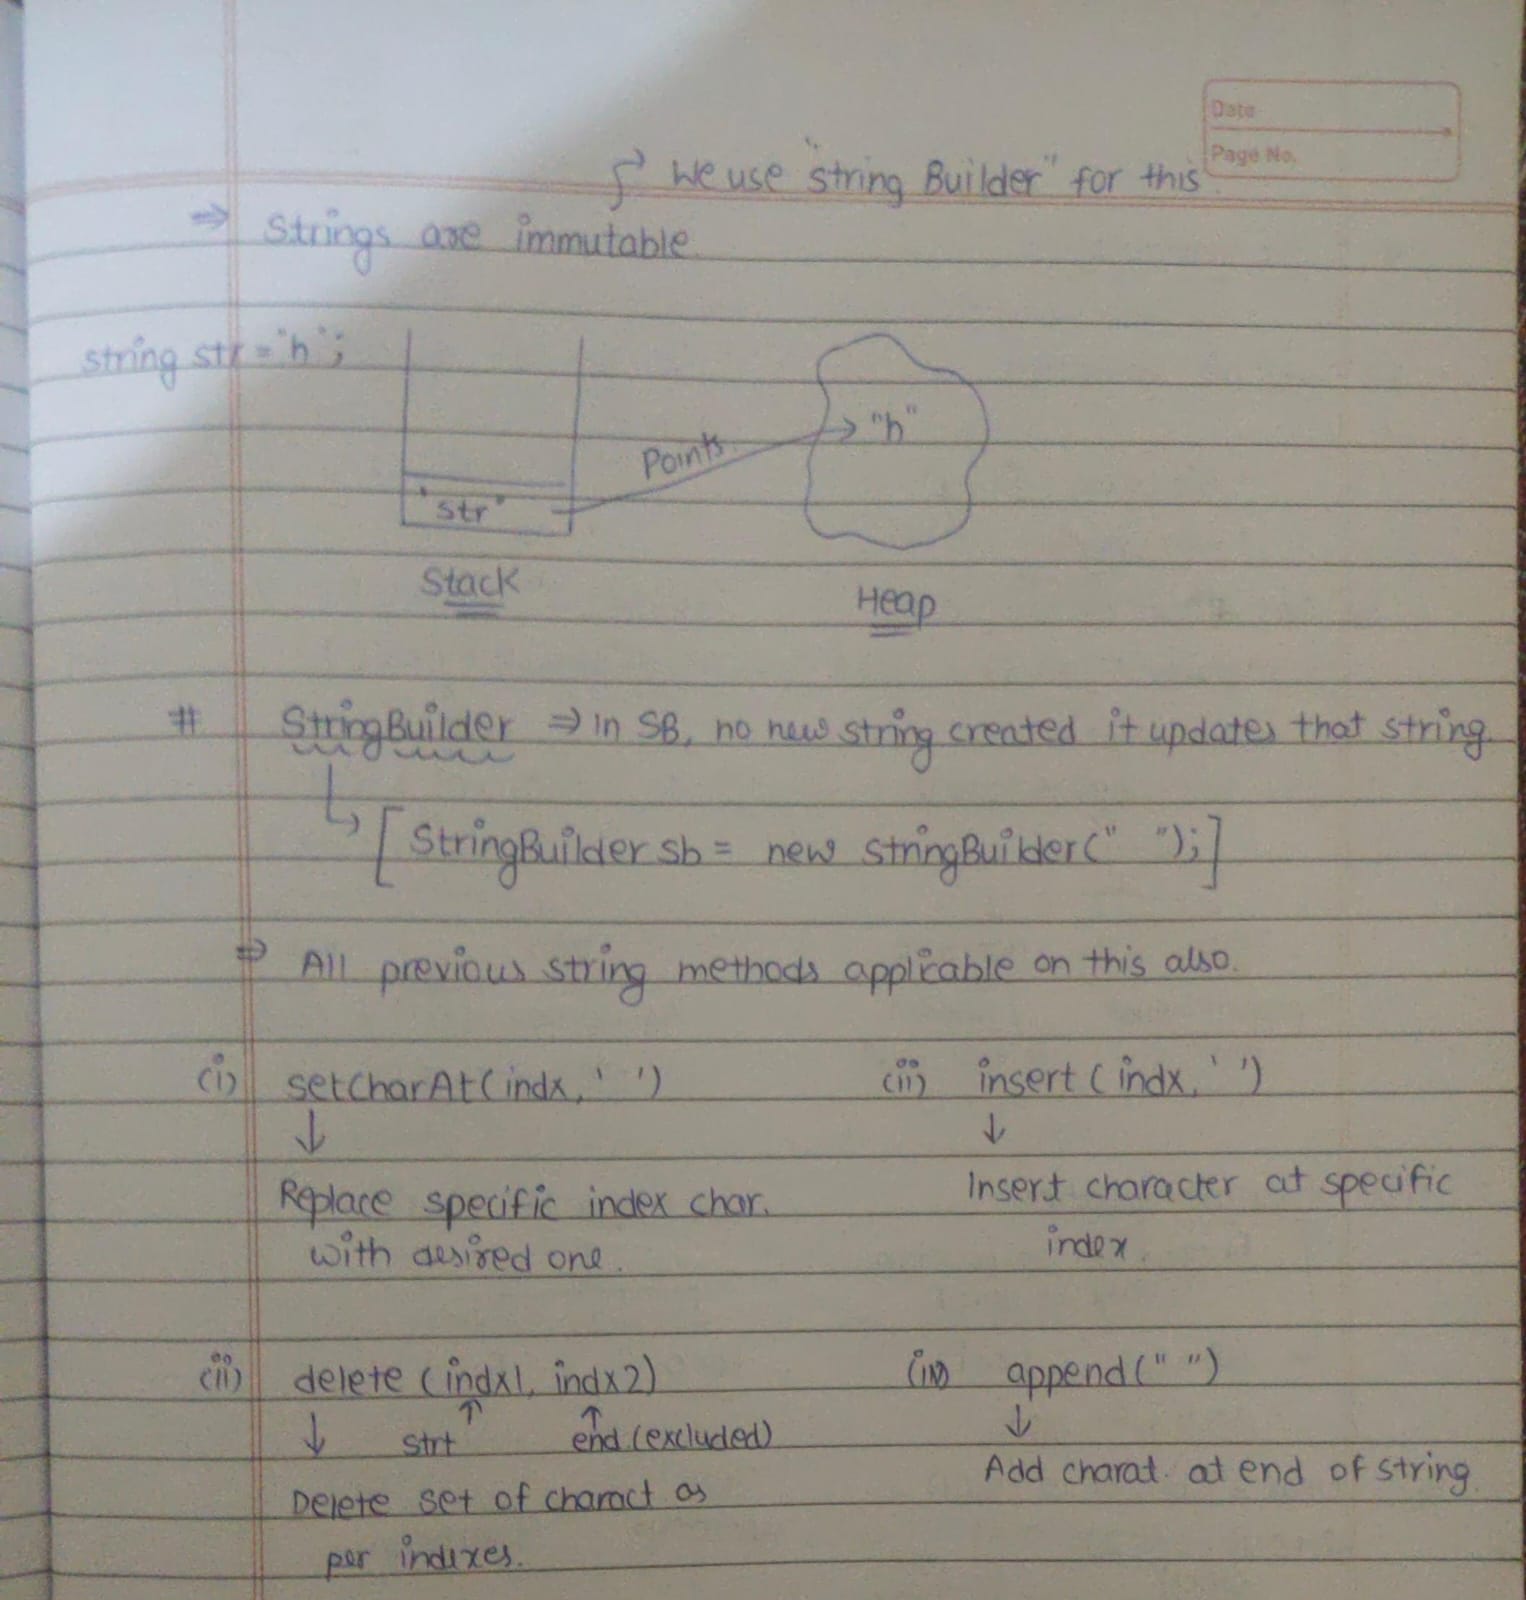 Date
Page No.
↱ We use "string Builder" for this
⇒ Strings are immutable.
string str = "h";
"h"
Points
"str"
Stack
Heap
# StringBuilder ⇒ In SB, no new string created it updates that string.
↳ [ StringBuilder sb = new stringBuilder(" "); ]
⇒ All previous string methods applicable on this also.
(i) setCharAt(indx, ' ')
↓
Replace specific index char.
with desired one.
(ii) insert (indx, ' ')
↓
Insert character at specific
index.
(iii) delete (indx1, indx2)
↑ ↑
↓ strt end (excluded)
Delete set of charact as
per indexes.
(iv) append(" ")
↓
Add charat. at end of string